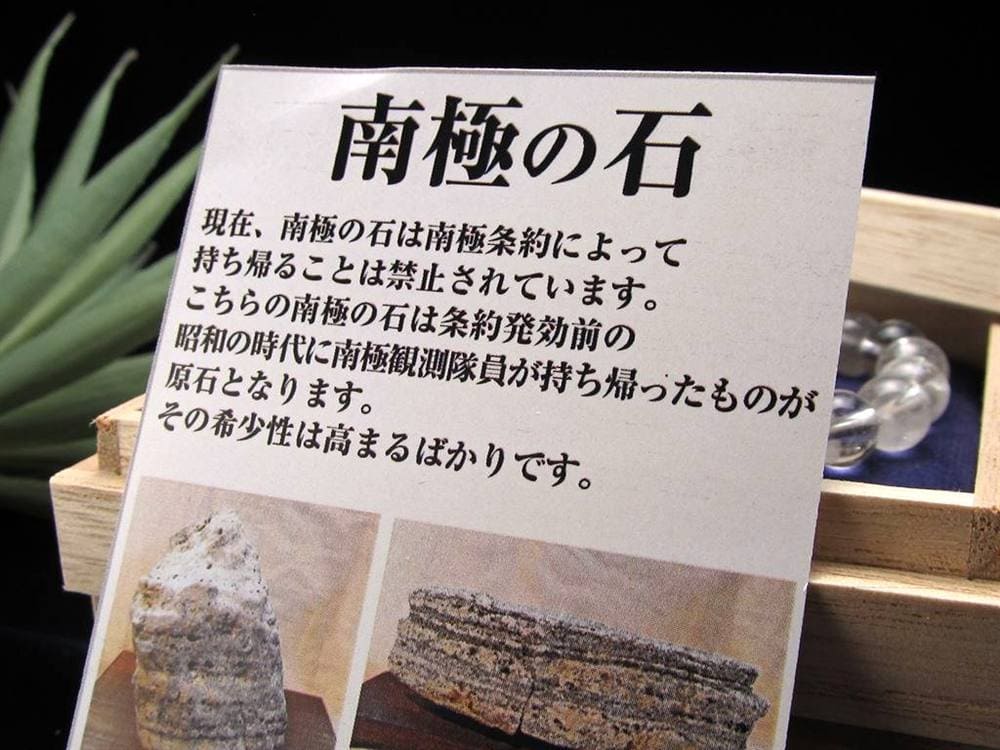 南極の石
現在、南極の石は南極条約によって
持ち帰ることは禁止されています。
こちらの南極の石は条約発効前の
昭和の時代に南極観測隊員が持ち帰ったものが
原石となります。
その希少性は高まるばかりです。